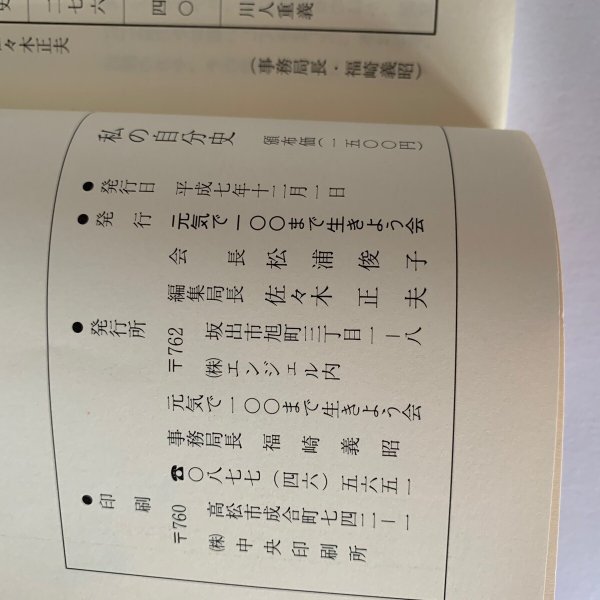 二七六
四〇
川人重義
々木正夫
(事務局長・福崎義昭)
私の自分史 頒布価(一五〇〇円)
●発行日 平成七年十二月一日
●発行 元気で一〇〇まで生きよう会
会長 松浦俊子
編集局長 佐々木正夫
●発行所 〒762 坂出市旭町三丁目一―八
㈱エンジェル内
元気で一〇〇まで生きよう会
事務局長 福崎義昭
☎〇八七七(四六)五六五一
●印刷 〒760 高松市成合町七四二―一
㈱中央印刷所